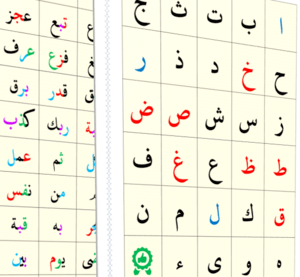 ا ب ت ث ج
ح خ د ذ ر
ز س ش ص ض
ط ظ ع غ ف
ق ك ل م ن
ه و ى ء
تبع عجز
فزع عرف
قدر برق
ربك كذب
ثم عمل
من نفس
به قبة
يوم بين